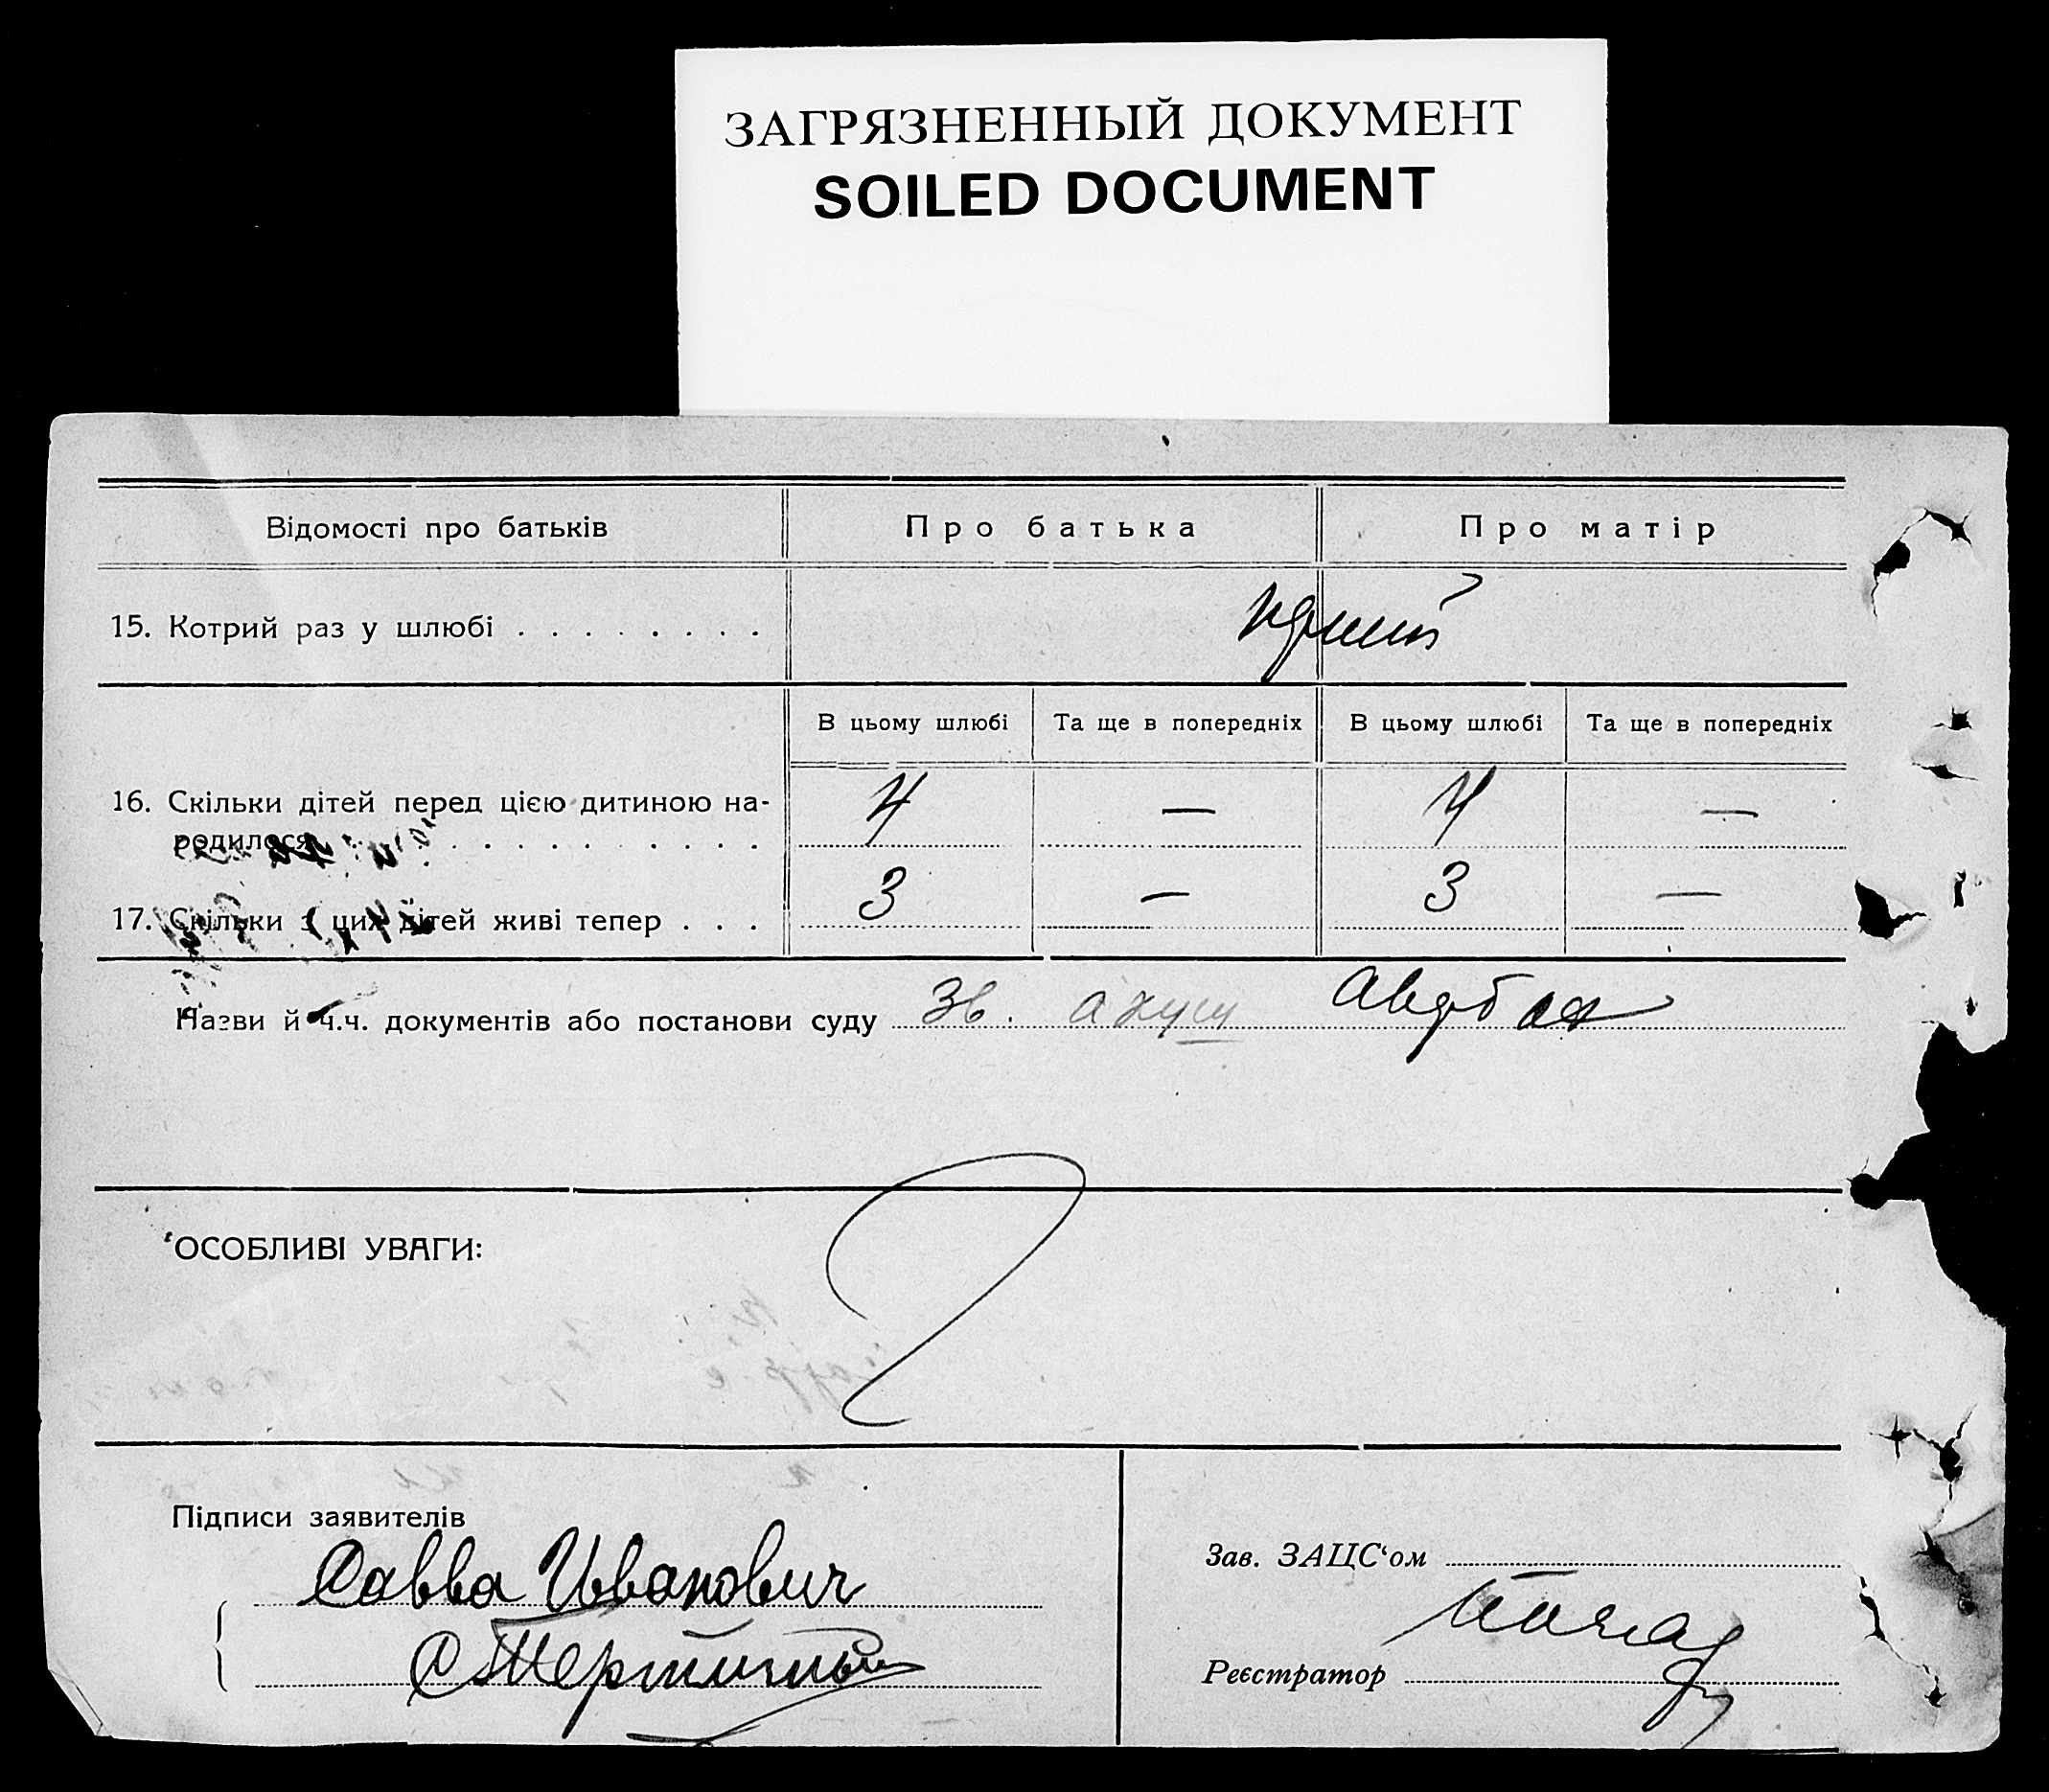 ЗАГРЯЗНЕННЫЙ ДОКУМЕНТ
SOILED DOCUMENT
Відомості про батьків Про батька Про матір
15. Котрий раз у шлюбі . . . . . . . .
В цьому шлюбі Та ще в попередніх В цьому шлюбі Та ще в попередніх
16. Скільки дітей перед цією дитиною на- 4 — 4 —
родилося . . . . . . . . . . .
17. Скільки з цих дітей живі тепер . . . 3 — 3 —
Назви й ч.ч. документів або постанови суду Зв.
ОСОБЛИВІ УВАГИ:
Підписи заявителів
Савва Иванович
Зав. ЗАЦС‘ом
Реєстратор